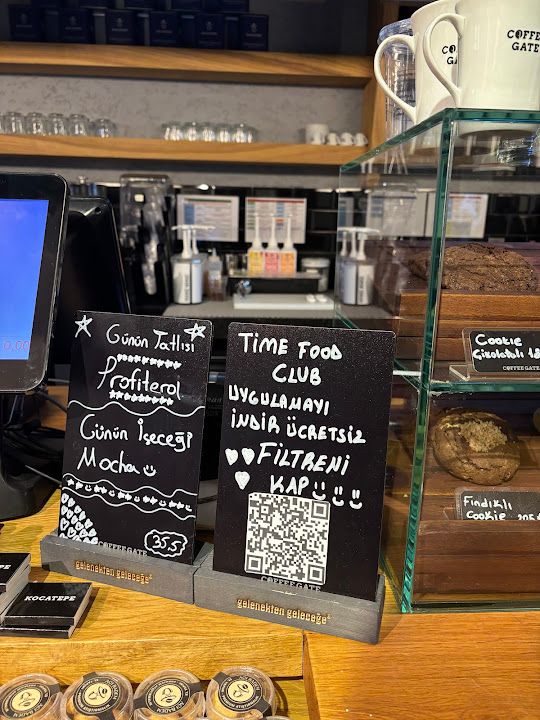 COFFEE
GATE
Günün Tatlısı
Profiterol
Günün İçeceği
Mocha
355
COFFEE GATE
gelenekten geleceğe
TIME FOOD
CLUB
UYGULAMAYI
İNDİR ÜCRETSİZ
FİLTRENİ
KAP
COFFEE GATE
gelenekten geleceğe
Cookie
Çikolatalı
COFFEE GATE
Fındıklı
Cookie
KOCATEPE